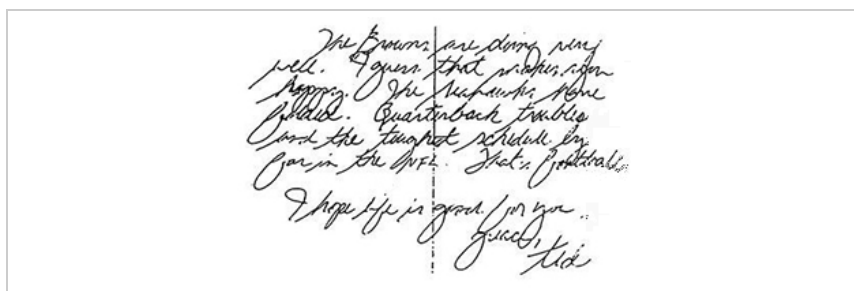 The Browns are doing very
well. I guess that makes you
happy. The Seahawks have
folded. Quarterback troubles
and the toughest schedule by
far in the NFL. That's football.
I hope life is good for you.
Peace,
Ted